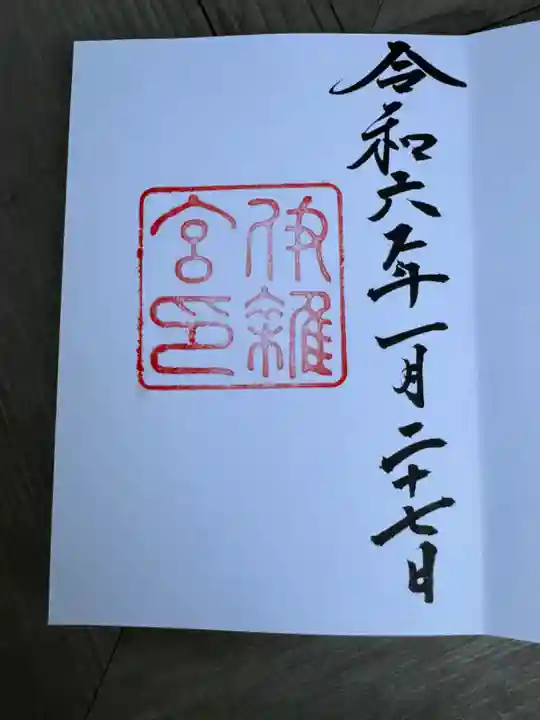 令和六年一月二十七日
伊雜
宮印